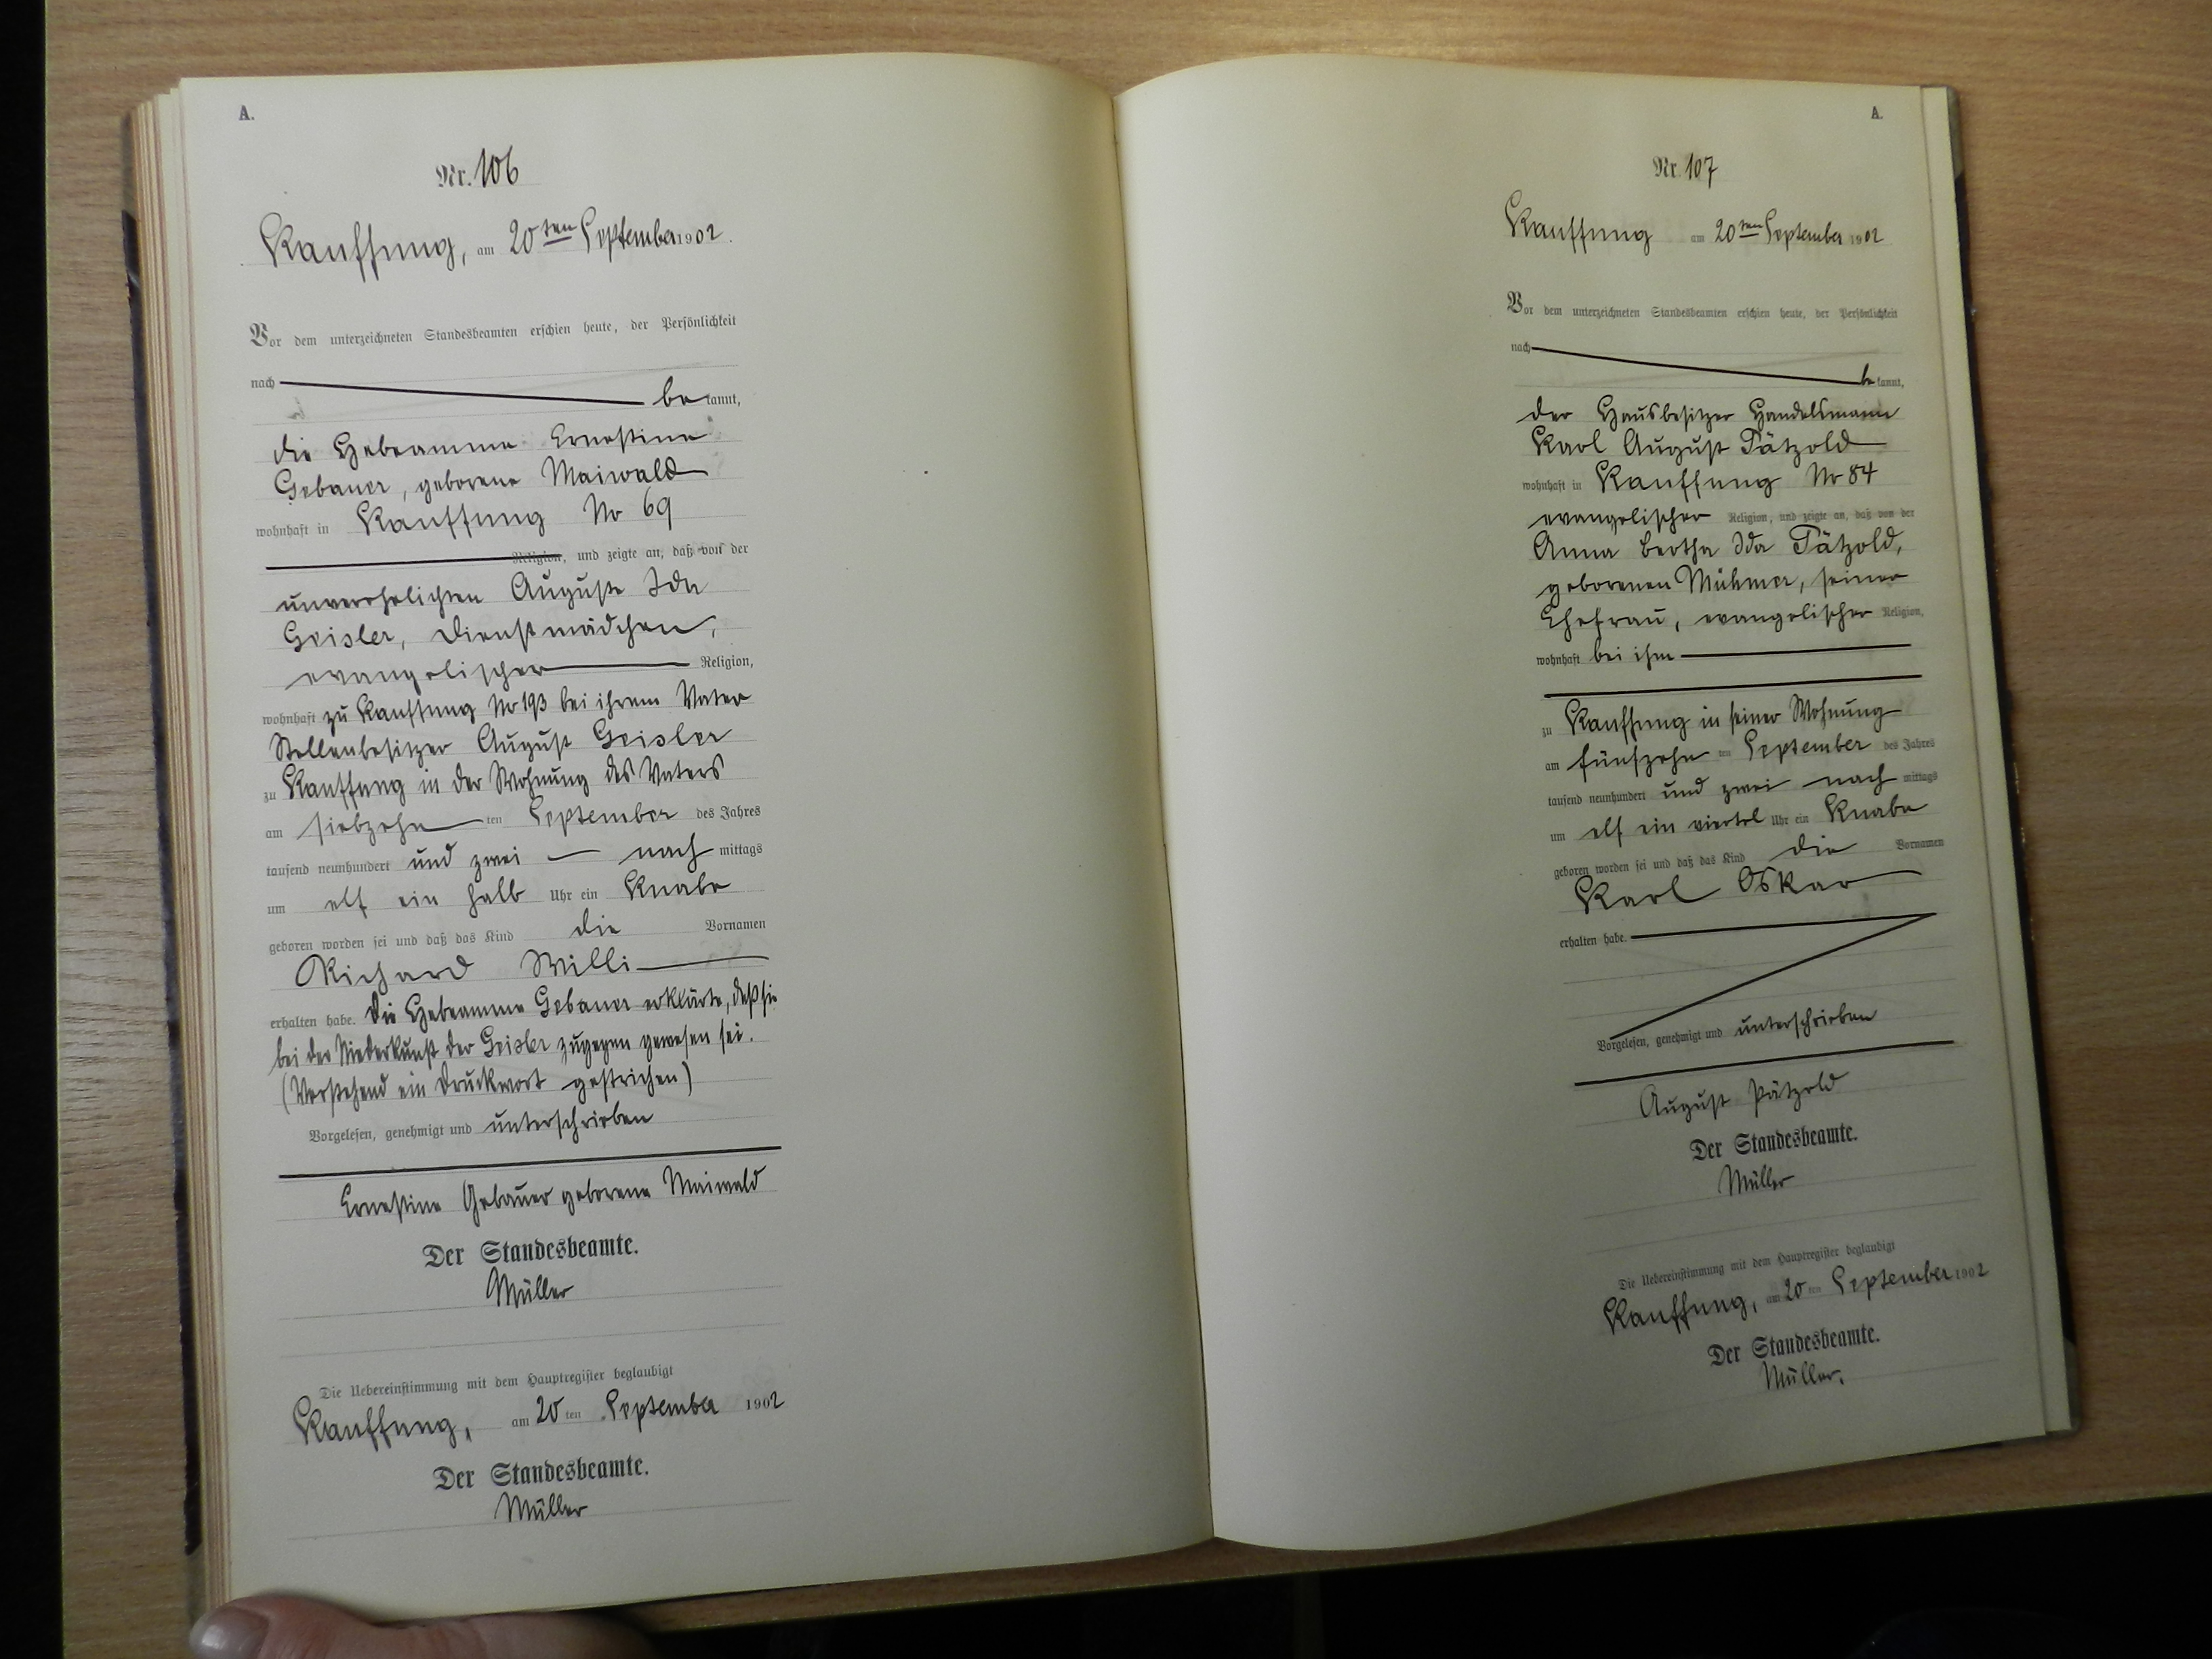 A.
Nr. 106
Kauffung, am 20ten September 1902.
Vor dem unterzeichneten Standesbeamten erschien heute, der Persönlichkeit
nach be kannt,
die Hebeamme Ernestine
Gebauer, geborene Maiwald
wohnhaft in Kauffung No 69
Religion, und zeigte an, daß von der
unverehelichten Auguste Ida
Geisler, Dienstmädchen,
evangelischer Religion,
wohnhaft zu Kauffung No 193 bei ihrem Vater
Stellenbesitzer August Geisler
zu Kauffung in der Wohnung des Vaters
am siebzehn ten September des Jahres
tausend neunhundert und zwei nach mittags
um elf ein halb Uhr ein Knabe
geboren worden sei und daß das Kind die Vornamen
Richard Willi
erhalten habe. Die Hebeamme Gebauer erklärte, daß sie
bei der Niederkunft der Geisler zugegen gewesen sei.
(Vorstehend ein Druckwort gestrichen)
Vorgelesen, genehmigt und unterschrieben
Ernestine Gebauer geborene Maiwald
Der Standesbeamte.
Müller
Die Uebereinstimmung mit dem Hauptregister beglaubigt
Kauffung, am 20 ten September 1902
Der Standesbeamte.
Müller
A.
Nr. 107
Kauffung am 20ten September 1902
Vor dem unterzeichneten Standesbeamten erschien heute, der Persönlichkeit
nach be kannt,
der Hausbesitzer Handelsmann
Karl August Pätzold
wohnhaft in Kauffung No 84
evangelischer Religion, und zeigte an, daß von der
Anna Bertha Ida Pätzold,
geborenen Mühmer, seiner
Ehefrau, evangelischer Religion,
wohnhaft bei ihm
zu Kauffung in seiner Wohnung
am fünfzehn ten September des Jahres
tausend neunhundert und zwei nach mittags
um elf ein viertel Uhr ein Knabe
geboren worden sei und daß das Kind die Vornamen
Karl Oskar
erhalten habe.
Vorgelesen, genehmigt und unterschrieben
August Pätzold
Der Standesbeamte.
Müller
Die Uebereinstimmung mit dem Hauptregister beglaubigt
Kauffung, am 20 ten September 1902
Der Standesbeamte.
Müller.